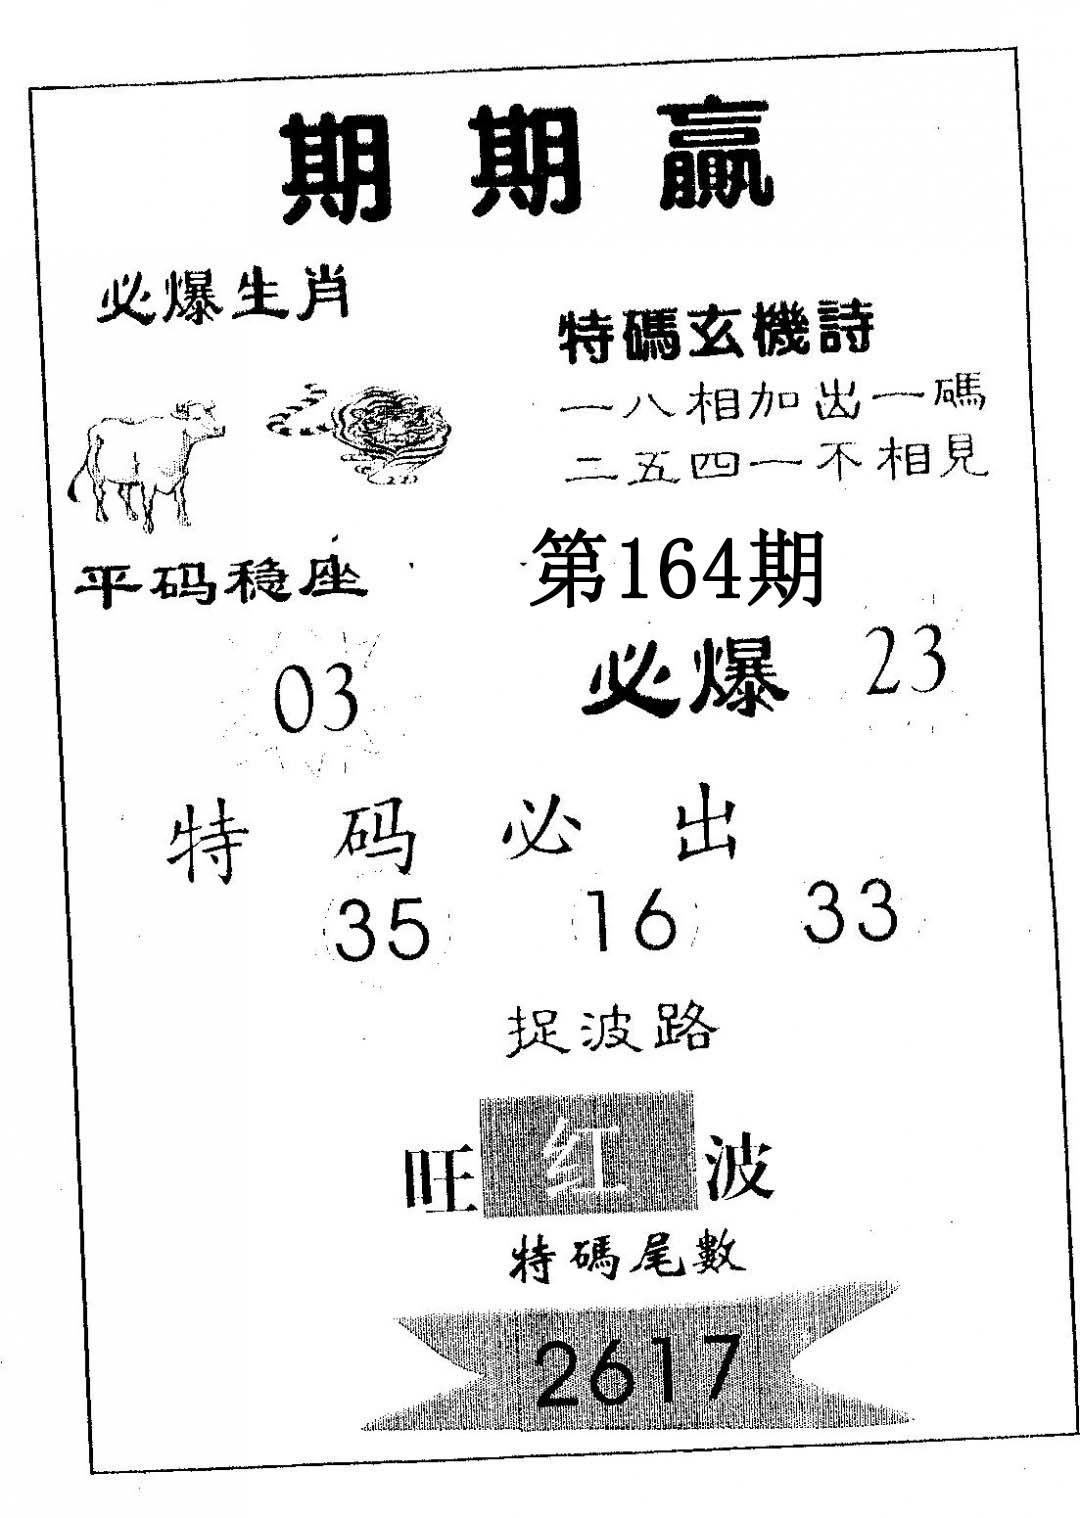 期期贏
必爆生肖
特碼玄機詩
一八相加出一碼
二五四一不相見
平码稳座
第164期
03
必爆 23
特码必出
35 16 33
捉波路
旺红波
特碼尾數
2617